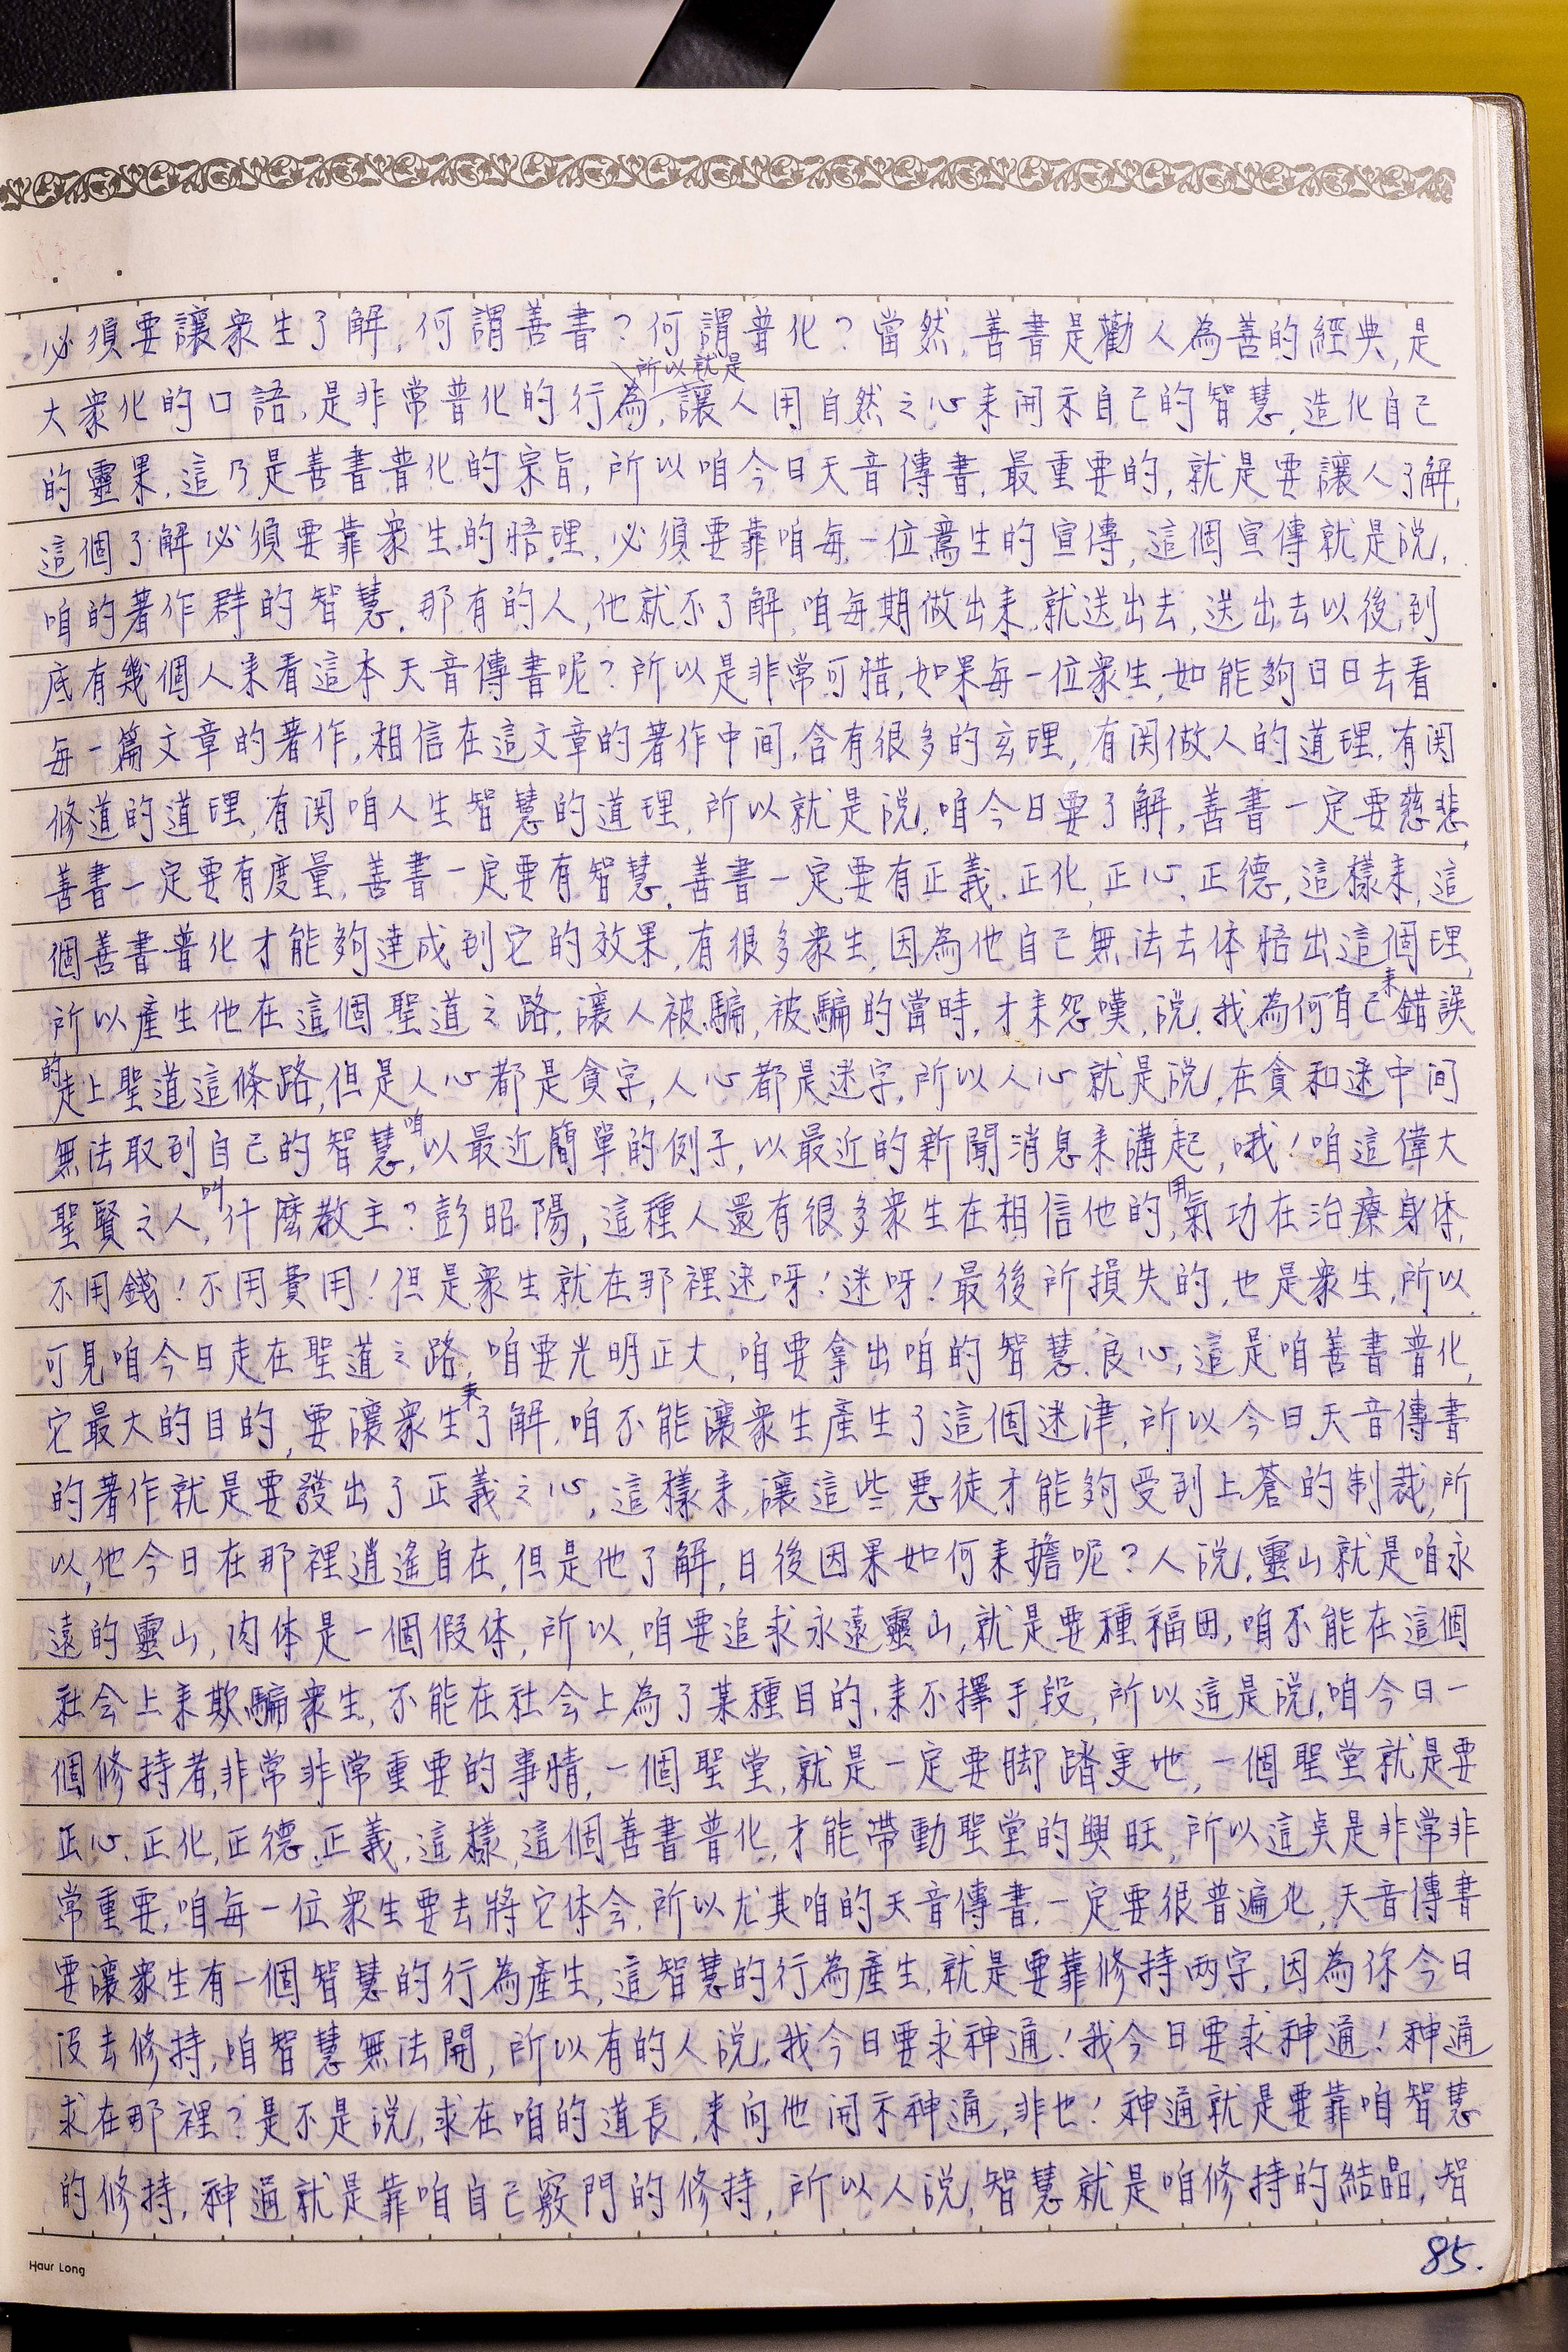 必須要讓衆生了解,何謂善書?何謂普化?當然,善書是勸人為善的經典,是
所以就是
大衆化的口語,是非常普化的行為,讓人用自然之心来開示自己的智慧,造化自己
的靈果,這乃是善書普化的宗旨,所以咱今日天音傳書,最重要的,就是要讓人了解,
這個了解必須要靠衆生的悟理,必須要靠咱每一位鸞生的宣傳,這個宣傳就是說,
咱的著作群的智慧,那有的人,他就不了解,咱每期做出来,就送出去,送出去以後,到
底有幾個人来看這本天音傳書呢?所以是非常可惜,如果每一位衆生,如能夠日日去看
每一篇文章的著作,相信在這文章的著作中间,含有很多的玄理,有関做人的道理,有関
修道的道理,有関咱人生智慧的道理,所以就是說,咱今日要了解,善書一定要慈悲,
善書一定要有度量,善書一定要有智慧,善書一定要有正義.正化.正心.正德,這樣来,這
個善書普化才能夠達成到它的效果,有很多衆生,因為他自己無法去体悟出這個理,
所以產生他在這個聖道之路,讓人被騙,被騙的當時,才来怨嘆,說,我為何自己来錯誤
的走上聖道這條路,但是人心都是貪字,人心都是迷字,所以人心就是說,在貪和迷中间
無法取到自己的智慧,咱以最近簡單的例子,以最近的新聞消息来講起,哦!咱這偉大
聖賢之人,叫什麼教主?彭昭陽,這種人還有很多衆生在相信他的,用氣功在治療身体,
不用錢!不用費用!但是衆生就在那裡迷呀!迷呀!最後所損失的,也是衆生,所以
可見咱今日走在聖道之路,咱要光明正大,咱要拿出咱的智慧.良心,這是咱善書普化,
它最大的目的,要讓衆生来了解,咱不能讓衆生產生了這個迷津,所以今日天音傳書
的著作就是要發出了正義之心,這樣来,讓這些惡徒才能夠受到上蒼的制裁,所
以,他今日在那裡逍遙自在,但是他了解,日後因果如何来擔呢?人說,靈山就是咱永
遠的靈山,肉体是一個假体,所以,咱要追求永遠靈山,就是要種福田,咱不能在這個
社会上来欺騙衆生,不能在社会上為了某種目的,来不擇手段,所以這是說,咱今日一
個修持者,非常非常重要的事情,一個聖堂,就是一定要脚踏実地,一個聖堂就是要
正心.正化.正德.正義,這樣,這個善書普化,才能帶動聖堂的興旺,所以這点是非常非
常重要,咱每一位衆生要去將它体会,所以尤其咱的天音傳書,一定要很普遍化,天音傳書
要讓衆生有一個智慧的行為產生,這智慧的行為產生,就是要靠修持两字,因為你今日
沒去修持,咱智慧無法開,所以有的人說,我今日要求神通!我今日要求神通!神通
求在那裡?是不是說,求在咱的道長,来向他開示神通,非也!神通就是要靠咱智慧
的修持,神通就是靠咱自己竅門的修持,所以人說,智慧就是咱修持的結晶,智
Haur Long
85.